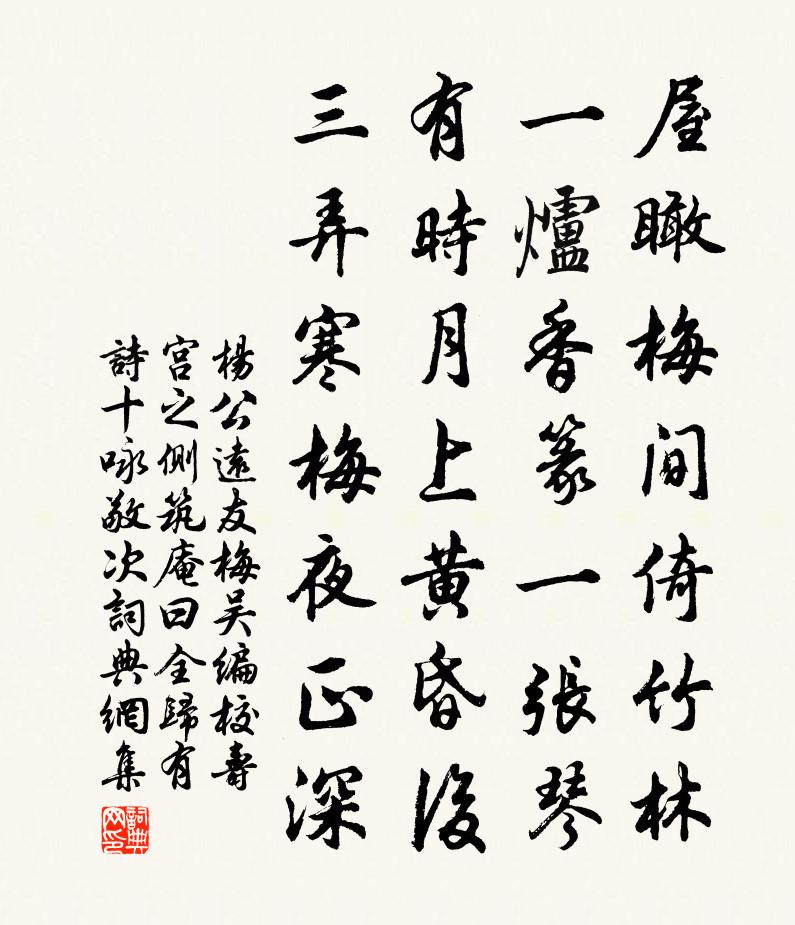 屋瞰梅間倚竹林
一爐香篆一張琴
有時月上黃昏後
三弄寒梅夜正深
楊公遠友梅吴編校壽
宫之側筑庵曰全歸有
詩十咏敬次詞典網集
詞典網印